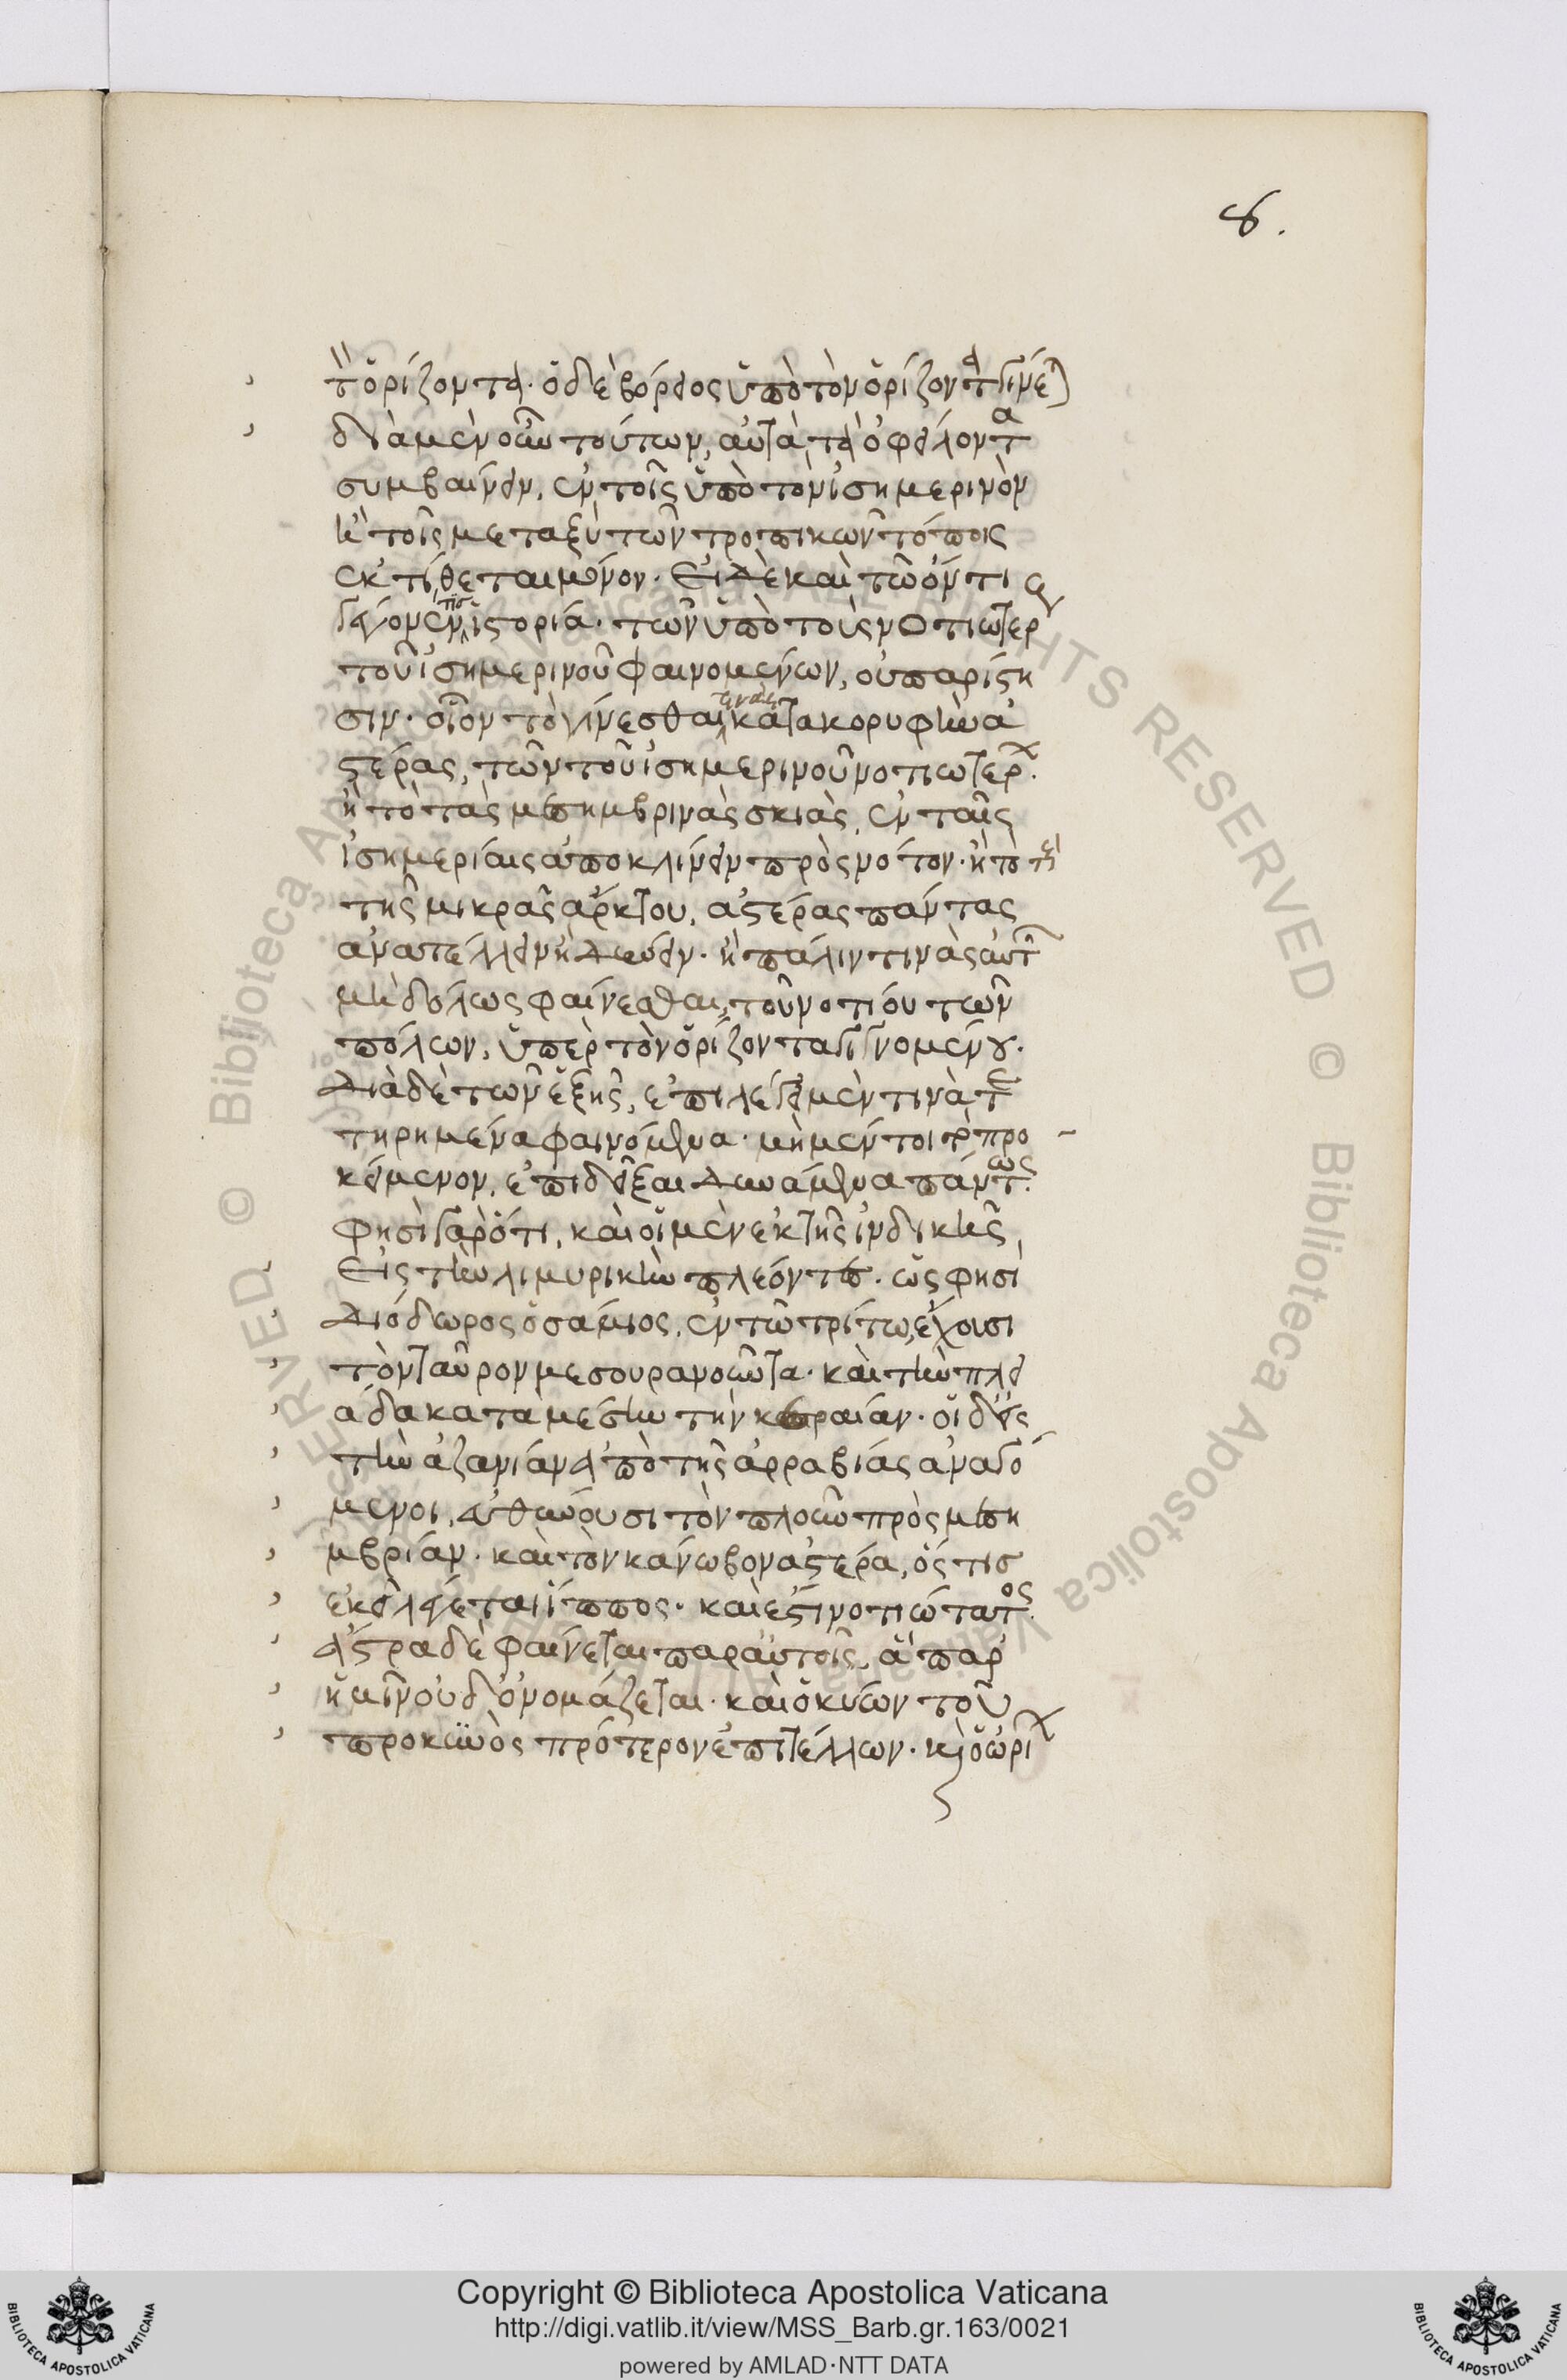 8.
τὸν ὁρίζοντα. ὁ δὲ βόρειος ὑπὸ τὸν ὁρίζοντα γίνεται
διὰ μὲν οὖν τούτων, αὐτὰ τὰ ὀφείλοντα
συμβαίνειν, ἐν τοῖς ὑπὸ τὸν ἰσημερινὸν
ἢ τοῖς μεταξὺ τῶν τροπικῶν τόποις
ἐκτίθεται μόνον. Εἰ δὲ καὶ τῶ ὄντι ἐ
γένετό τις ἱστορία. τῶν ὑπὸ τοὺς νοτιωτέρ
τοῦ ἰσημερινοῦ φαινομένων, οὐ παρίστη
σιν. οἷον τὸ γίνεσθαί τινας κατὰ κορυφὴν ἀ
στέρας, τῶν τοῦ ἰσημερινοῦ νοτιωτέρων.
ἢ τὸ τὰς μεσημβρινὰς σκιὰς, ἐν ταῖς
ἰσημερίαις ἀποκλίνειν πρὸς νότον. ἢ τὸ τοὺς
τῆς μικρᾶς ἄρκτου, ἀστέρας πάντας
ἀνατέλλειν ἢ δύνειν. ἢ πάλιν τινὰς αὐτῶν
μηδόλως φαίνεσθαι, τοῦ νοτίου τῶν
πόλων, ὑπὲρ τὸν ὁρίζοντα γινομένου.
Διὰ δὲ τῶν ἑξῆς, ἐπιλέγει μὲν τινὰ τε
τηρημένα φαινόμενα. μὴ μέντοι τὸ προ
κείμενον, ἐπιδεῖξαι δυνάμενα πάντως.
φησὶ γὰρ ὅτι, καὶ οἱ μὲν ἐκ τῆς ἰνδικῆς,
Εἰς τὴν λιμυρικὴν πλέοντες. ὥς φησι
Διόδωρος ὁ σάμιος, ἐν τῶ τρίτω, ἔχουσι
τὸν ταῦρον μεσουρανοῦντα. καὶ τὴν πλει
άδα κατὰ μέσην τὴν κεραίαν. οἱ δ' εἰς
τὴν ἀζανίαν ἀπὸ τῆς ἀρραβίας ἀναγό
μενοι, εὐθύνουσι τὸν πλοῦν πρὸς μεση
μβρίαν. καὶ τὸν κάνωβον ἀστέρα, ὅς τις
ἐκεῖ λέγεται ἵππος. καὶ ἔστι νοτιώτατος.
ἄστρα δὲ φαίνεται παρ' αὐτοῖς, ἃ παρ'
ἡμῖν οὐδ' ὀνομάζεται. καὶ ὁ κύων τοῦ
προκυνὸς πρότερον ἐπιτέλλων. καὶ ὁ ὠρί
Copyright © Biblioteca Apostolica Vaticana
http://digi.vatlib.it/view/MSS_Barb.gr.163/0021
powered by AMLAD·NTT DATA